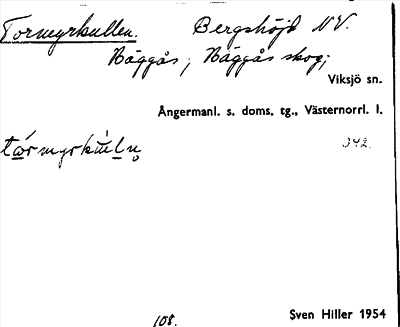 Tormyrkullen. Bergshöjd NV.
Bäggås; Bäggås skog;
Viksjö sn.
Ångermanl. s. doms. tg., Västernorrl. l.
342.
108.
Sven Hiller 1954